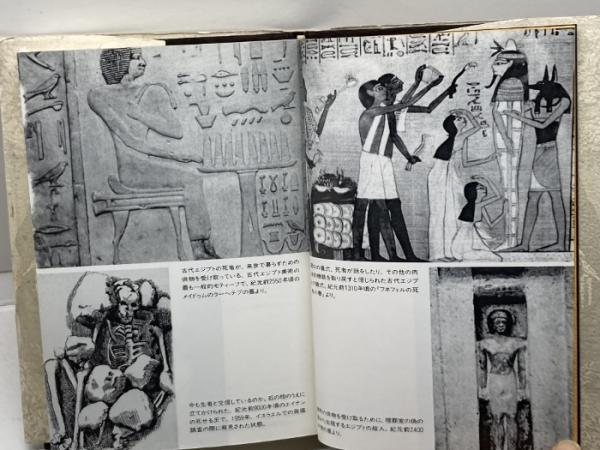 古代エジプトの死者が、来世で暮らすための
供物を受け取っている。古代エジプト美術の
最も一般的モティーフで、紀元前2550年頃の
メイドゥムのラーヘテプの墓より。
の儀式。死者が話をしたり、その他の肉
機能を取り戻すと信じられた古代エジ
儀式。紀元前1310年頃の『フネフェルの死
の書』より。
今も生者と交信しているのか、石の枕のうえに
立てかけられた、紀元前8000年頃のエイナン
の死せる王で、1959年、イスラエルでの発掘
調査の際に発見された状態。
供物を受け取るために、埋葬室の偽の
出現するエジプトの故人。紀元前2400
の墓より。